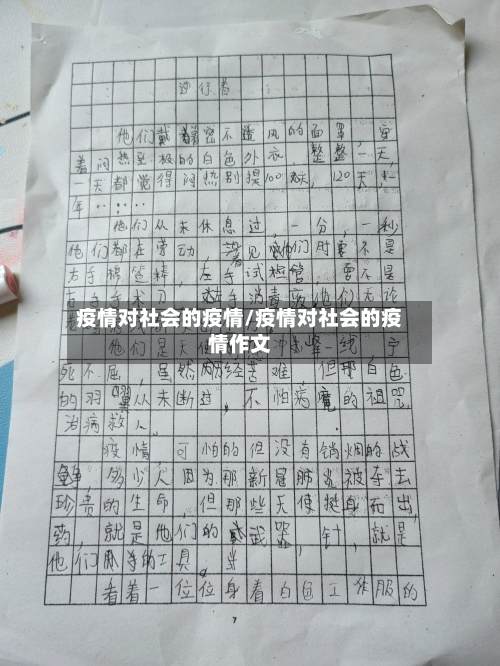 逆行者
他们戴着密不透风的面罩，穿
着闷热至极的白色外衣，整整一天，
一天都觉得闷热别提100天，120天，一
年……
他们从未休息过，一分，一秒
他们都在劳动，看见他们时要不是
右手棉签精，左手试管，要不是
右手手术刀，左手消毒液他们无论
疫情对社会的疫情/疫情对社会的疫
情作文
他们是天使 冲 一线，宁
死不屈，虽然历经苦难 但那白色
的羽翼从未断过，不怕病魔的诅咒，
治病救人。
疫情 可怕的但没有销烟的战
争，多少人因为那新冠肺炎被夺去
珍贵的生命，但那些天使挺身而出，
药，就是他们的武器，针，就是
他们的工具。
看着一位位身着白色工作服的
7